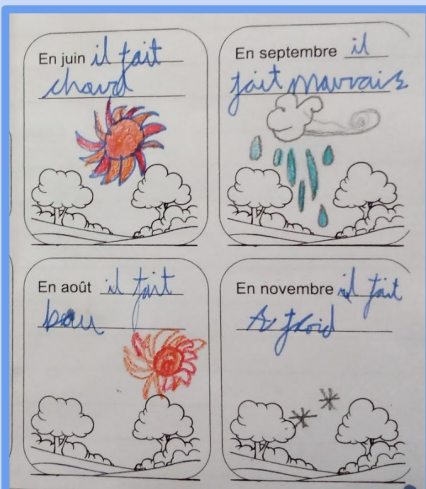 En juin il fait
chaud
En septembre il
fait mauvais
En août il fait
beau
En novembre il fait
froid